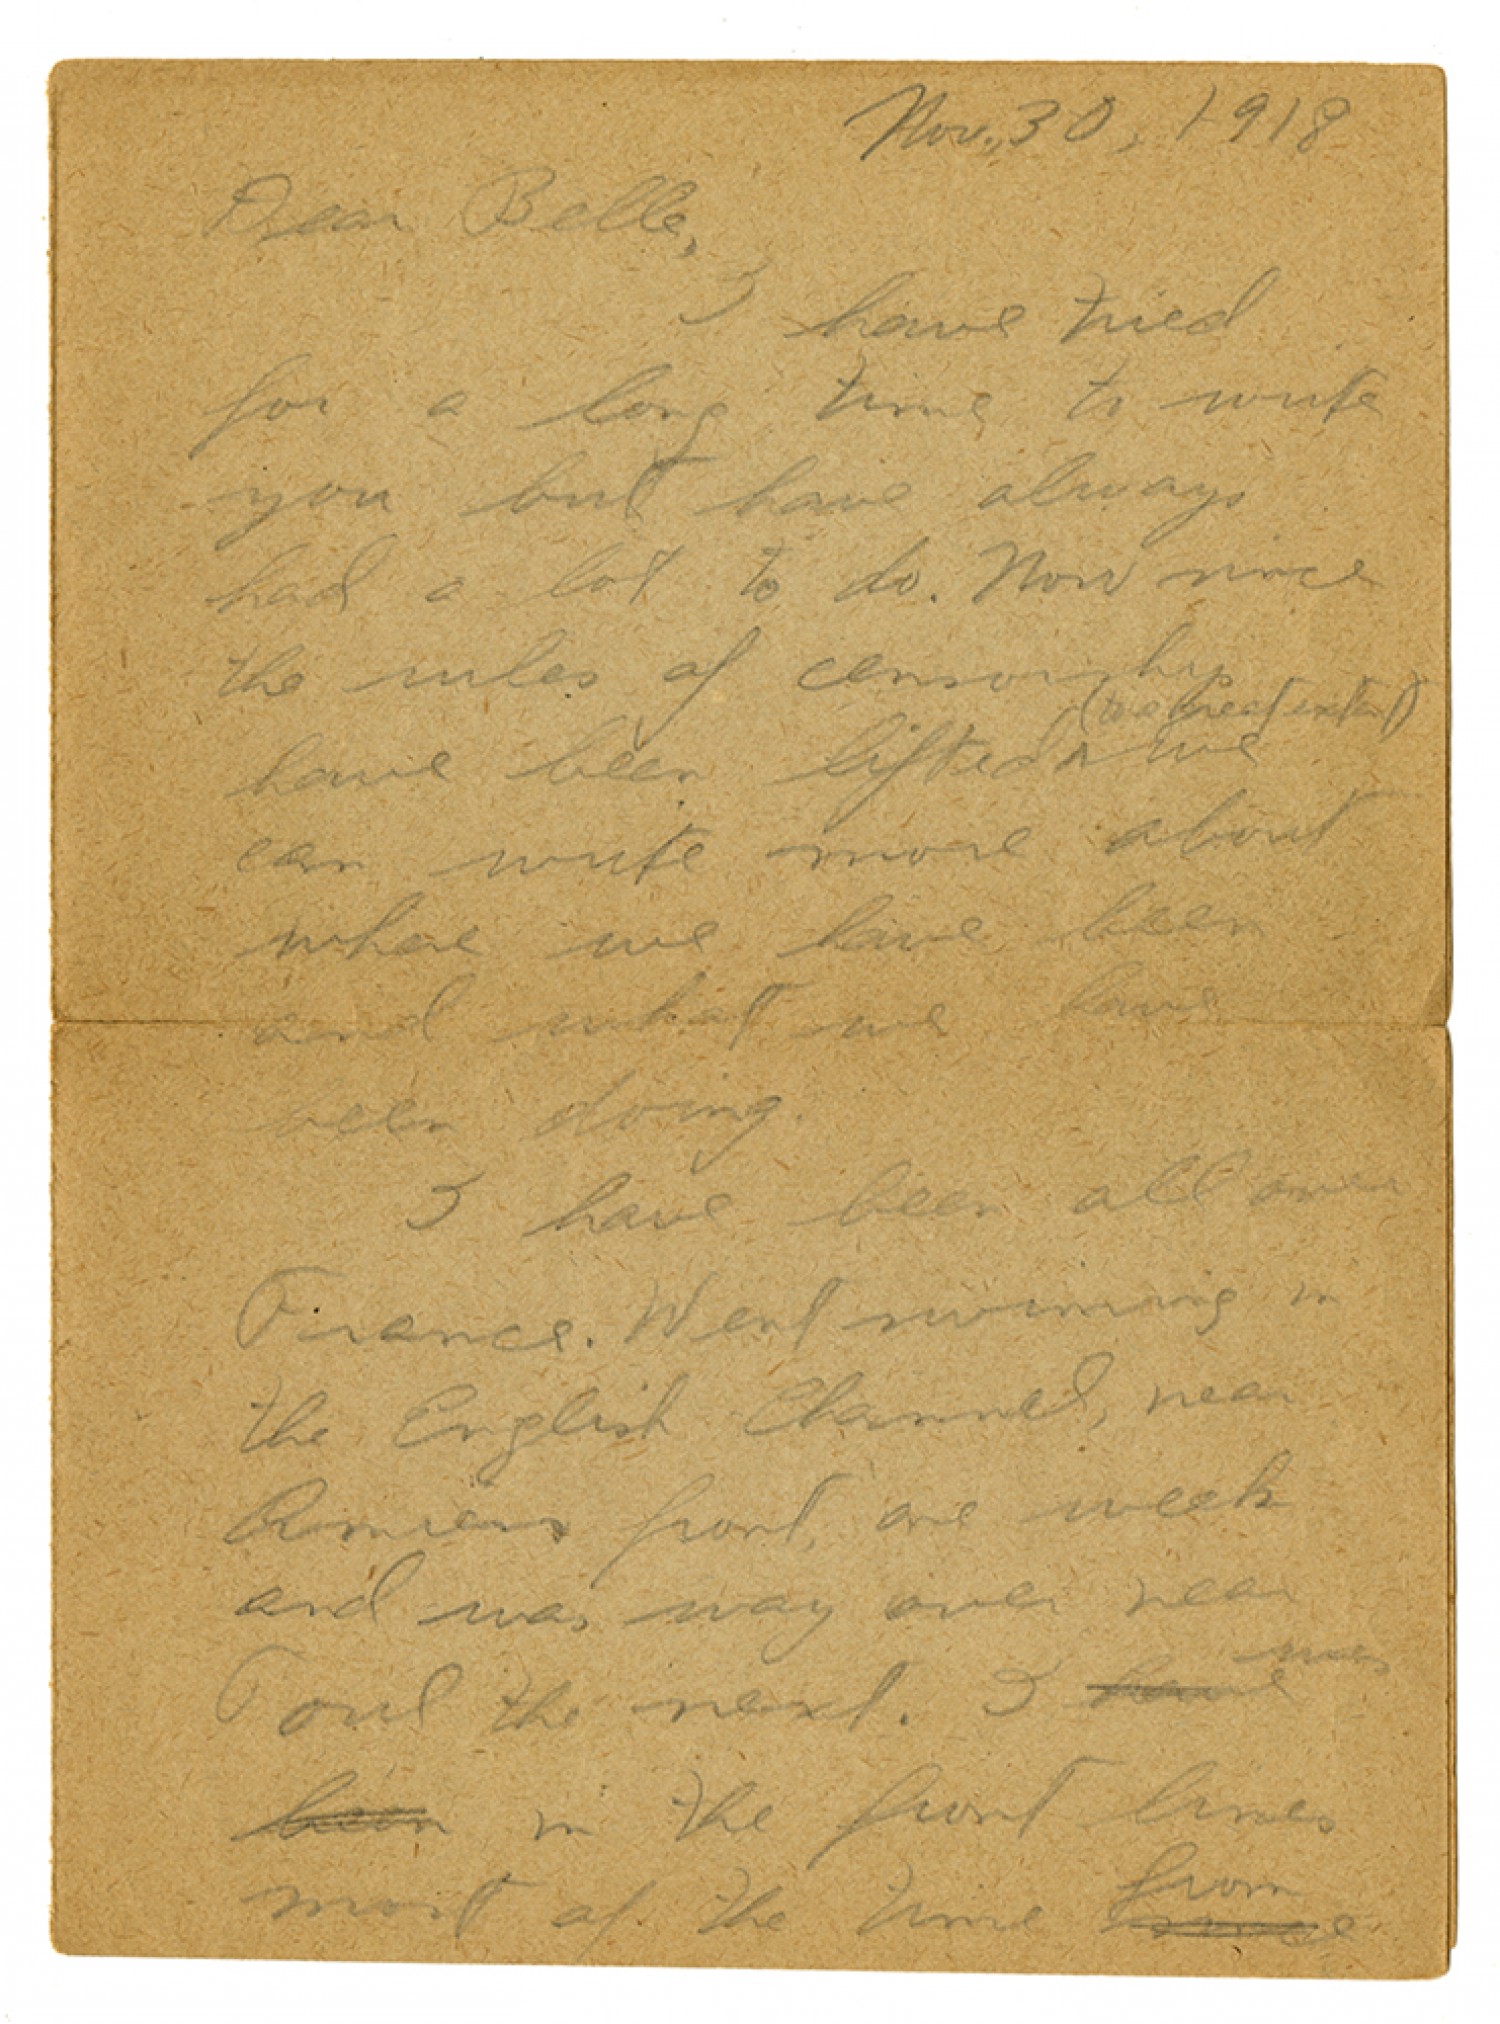 Nov. 30, 1918
Dear Belle,
I have tried
for a long time to write
you but have always
had a lot to do. Now since
the rules of censorship
(to a great extent)
have been lifted ^ we
can write more about
where we have been
and what we have
been doing.
I have been all over
France. Went swimming in
the English Channel, near
Amiens front, one week
and was way over near
was
Toul the next. I have
been in the front lines
from
most of the time since